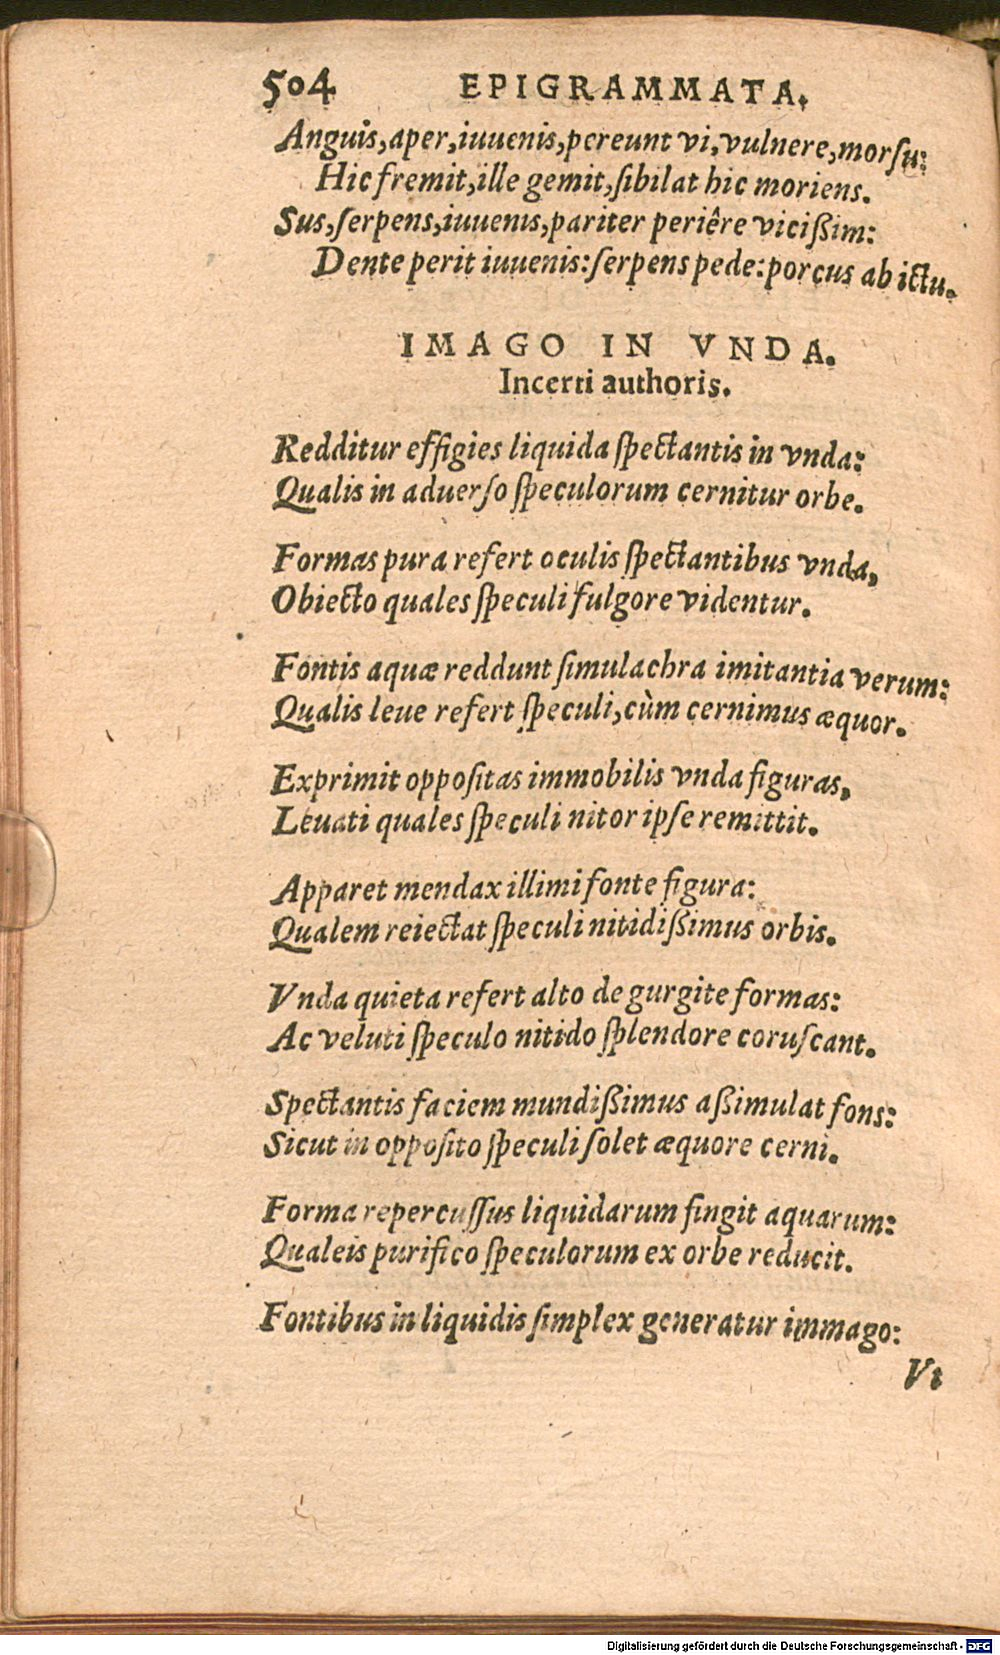 504 EPIGRAMMATA.
Anguis, aper, iuuenis, pereunt vi, vulnere, morsu:
Hic fremit, ille gemit, sibilat hic moriens.
Sus, serpens, iuuenis, pariter periêre vicißim:
Dente perit iuuenis: serpens pede: porcus ab ictu.
IMAGO IN VNDA.
Incerti authoris.
Redditur effigies liquida spectantis in vnda:
Qualis in aduerso speculorum cernitur orbe.
Formas pura refert oculis spectantibus vnda,
Obiecto quales speculi fulgore videntur.
Fontis aquæ reddunt simulachra imitantia verum:
Qualis leue refert speculi, cùm cernimus æquor.
Exprimit oppositas immobilis vnda figuras,
Leuati quales speculi nitor ipse remittit.
Apparet mendax illimi fonte figura:
Qualem reiectat speculi nitidißimus orbis.
Vnda quieta refert alto de gurgite formas:
Ac veluti speculo nitido splendore coruscant.
Spectantis faciem mundißimus aßimulat fons:
Sicut in opposito speculi solet æquore cerni.
Forma repercussus liquidarum fingit aquarum:
Qualeis purifico speculorum ex orbe reducit.
Fontibus in liquidis simplex generatur immago:
Vt
Digitalisierung gefördert durch die Deutsche Forschungsgemeinschaft - DFG